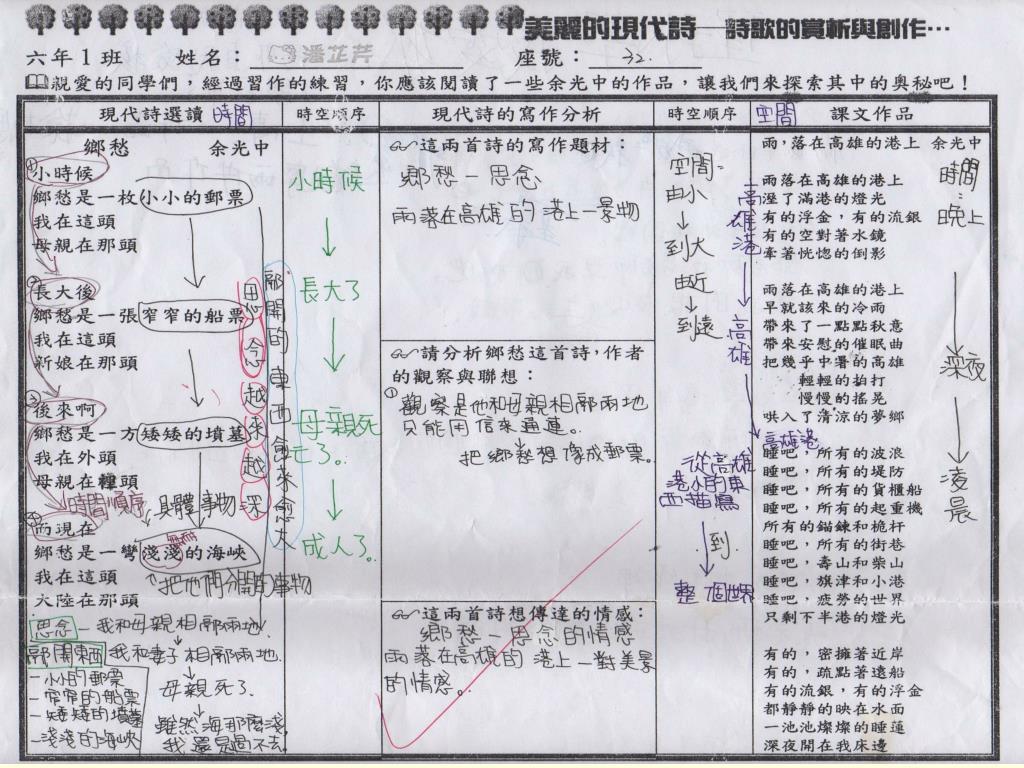 美麗的現代詩——詩歌的賞析與創作…
六年1班 姓名：潘芷芹 座號：32.
親愛的同學們，經過習作的練習，你應該閱讀了一些余光中的作品，讓我們來探索其中的奧秘吧！
現代詩選讀 時間
鄉愁 余光中
①小時候
鄉愁是一枚小小的郵票
我在這頭
母親在那頭
②長大後
鄉愁是一張窄窄的船票
我在這頭
新娘在那頭
③後來啊
鄉愁是一方矮矮的墳墓
我在外頭
母親在裡頭
時間順序
具體事物
④而現在
鄉愁是一彎淺淺的海峽
我在這頭
大陸在那頭
把他們分開的事物
思念越來越深
隔開的東西愈來愈大
思念－我和母親相隔兩地.
隔開東西 我和妻子相隔兩地.
母親死了.
雖然海那麼淺,
我還是過不去.
－小小的郵票
－窄窄的船票
－矮矮的墳墓
－淺淺的海峽
時空順序
小時候
長大了
母親死
亡了。
成人了。
現代詩的寫作分析
這兩首詩的寫作題材：
鄉愁－思念
雨落在高雄的港上－景物
請分析鄉愁這首詩，作者
的觀察與聯想：
①觀察是他和母親相隔兩地
只能用信來通連。
把鄉愁想像成郵票。
這兩首詩想傳達的情感：
鄉愁－思念的情感
雨落在高雄的港上－對美景
的情感。
時空順序
空間：
由小
到大
由近
到遠
高雄港
高雄
高雄港
從高雄
港小的東
西描寫
到
整個世界
空間 課文作品
雨，落在高雄的港上 余光中
雨落在高雄的港上
溼了滿港的燈光
有的浮金，有的流銀
有的空對著水鏡
牽著恍惚的倒影
雨落在高雄的港上
早就該來的冷雨
帶來了一點點秋意
帶來安慰的催眠曲
把幾乎中暑的高雄
輕輕的拍打
慢慢的搖晃
哄入了清涼的夢鄉
睡吧，所有的波浪
睡吧，所有的堤防
睡吧，所有的貨櫃船
睡吧，所有的起重機
所有的錨鍊和桅杆
睡吧，所有的街巷
睡吧，壽山和柴山
睡吧，旗津和小港
睡吧，疲勞的世界
只剩下半港的燈光
有的，密擁著近岸
有的，疏點著遠船
有的流銀，有的浮金
都靜靜的映在水面
一池池燦燦的睡蓮
深夜開在我床邊
時間：晚上
深夜
凌晨